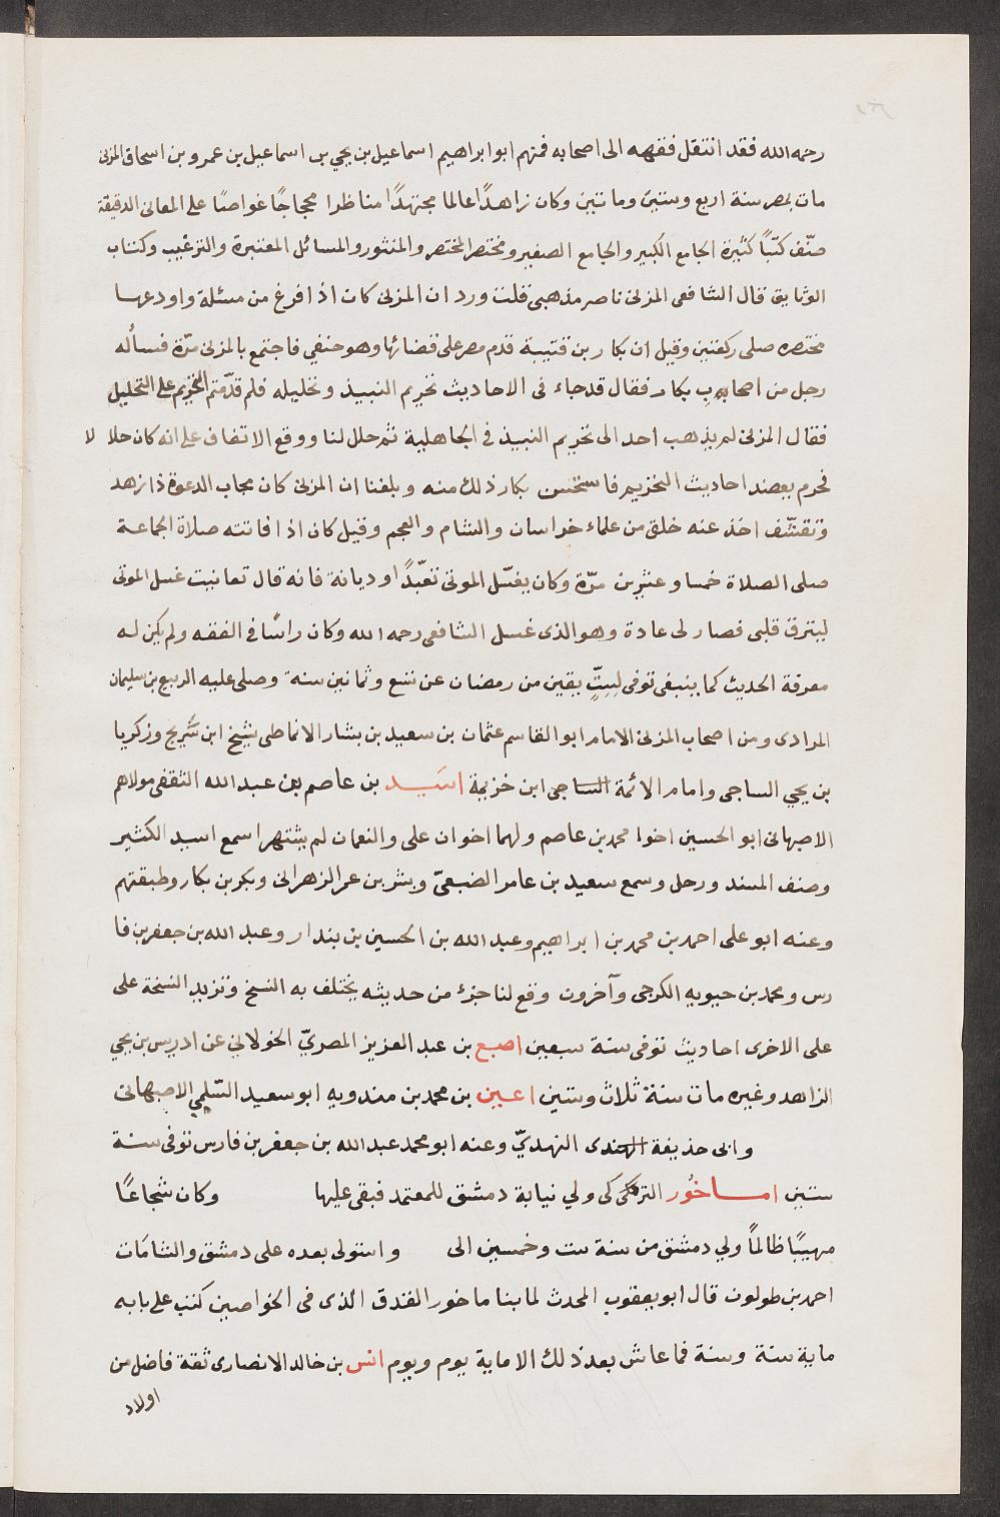 رحمه الله فقد انتقل فقهه الى اصحابه فمنهم ابو ابراهيم اسماعيل بن يحيى بن اسماعيل بن عمرو بن اسحاق المزنى
مات بمصر سنة اربع وستين وماتين وكان زاهدًا عالما مجتهدًا مناظرا محجاجًا غواصًا على المعانى الدقيقة
صنّف كتبًا كثيرة الجامع الكبير والجامع الصغير ومختصر المختصر والمنثور والمسائل المعتبرة والترغيب وكتاب
الوثايق قال الشافعى المزنى ناصر مذهبى قلت ورد ان المزنى كان اذا فرغ من مسئلة واودعها
مختصره صلى ركعتين وقيل ان بكار بن قتيبة قدم مصر على قضائها وهو حنفي فاجتمع بالمزنى مرّة فسأله
رجل من اصحاب بكار فقال قد جاء فى الاحاديث تحريم النبيذ وتحليله فلم قدّمتم التحريم على التحليل
فقال المزنى لم يذهب احد الى تحريم النبيذ في الجاهلية ثم حلل لنا ووقع الاتفاق على انه كان حلالا
فحرم يعضد احاديث التحريم فاستحسن بكار ذلك منه وبلغنا ان المزنى كان مجاب الدعوة ذا زهد
وتقشّف اخذ عنه خلق من علماء خراسان والشام والعجم وقيل كان اذا فاتته صلاة الجماعة
صلى الصلاة خمسا وعشرين مرّة وكان يغسّل الموتى تعبّدًا وديانة فانه قال تعانيت غسل الموتى
ليترق قلبى فصار لى عادة وهو الذى غسل الشافعى رحمه الله وكان راسًا في الفقه ولم يكن له
معرفة الحديث كما ينبغى توفى لستٍّ بقين من رمضان عن تسع وثمانين سنة وصلى عليه الربيع بن سليمان
المرادى ومن اصحاب المزنى الامام ابو القاسم عثمان بن سعيد بن بشار الانماطى شيخ ابن سُريج وزكريا
بن يحيى الساجى وامام الائمة ابن خزيمة اسَيد بن عاصم بن عبد الله الثقفى مولاهم
الاصبهانى ابو الحسين اخوا محمد بن عاصم ولهما اخوان على والنعمان لم يشتهرا سمع اسيد الكثير
وصنف المسند ورحل وسمع سعيد بن عامر الضبعىّ وبشر بن عمر الزهرانى وبكر بن بكار وطبقتهم
وعنه ابو على احمد بن محمد بن ابراهيم وعبد الله بن الحسين بن بندار وعبد الله بن جعفر بن فا
رس ومحمد بن حيويه الكرجى وآخرون وقع لنا جزء من حديثه يختلف به النسخ وتزيد النسخة على
على الاخرى احاديث توفى سنة سبعين اصبع بن عبد العزيز المصرىّ الخولانى عن ادريس بن يحيى
الزاهد وغيره مات سنة ثلاث وستين اعين بن محمد بن مندويه ابو سعيد السّلمي الاصبهانى
وابى حذيفة النهدىّ وعنه ابو محمد عبد الله بن جعفر بن فارس توفى سنة
ستين اماخُور التركى ولي نيابة دمشق للمعتمد فبقى عليها وكان شجاعًا
مهيبًا ظالمًا ولي دمشق من سنة ست وخمسين الى واستولى بعده على دمشق والشامات
احمد بن طولون قال ابو يعقوب المحدث لما بنا ماخور الفندق الذى فى الخواصين كتب على بابه
ماية سنة وسنة فما عاش بعد ذلك الا ماية يوم ويوم انس بن خالد الانصارى ثقة فاضل من
اولاد